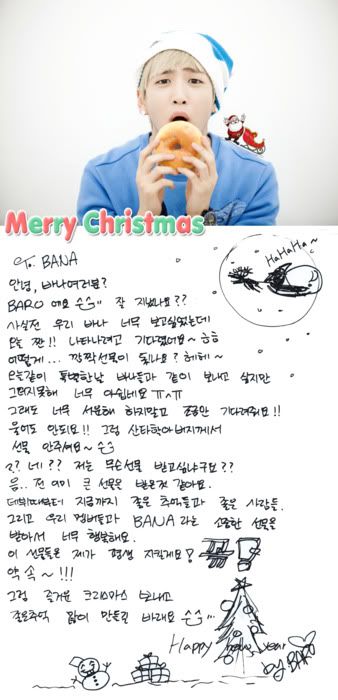 Merry Christmas
To. BANA
HaHaHa~
안녕, 바나여러분?
BARO 에요 잘 지냈나요??
사실전 우리 바나 너무 보고싶었는데
오늘 짠!! 나타나려고 기다렸어요~ ㅎㅎ
어떻게... 깜짝선물이 됐나요? 헤헤~
오늘같이 특별한날 바나들과 같이 보내고 싶지만
그러지못해 너무 아쉽네요 ㅠ^ㅠ
그래도 너무 서운해 하지말고 좀만 기다려줘요!!
울어도 안되요!! 그럼 산타할아버지께서
선물 안주셔요~
네?? 저는 무슨선물 받고싶냐구요??
음.. 전 이미 큰 선물을 받은것 같아요.
데뷔때부터 지금까지 좋은 추억들과 좋은 사람들.
그리고 우리 멤버들과 BANA 라는 소중한 선물을
받아서 너무 행복해요.
이 선물들은 제가 평생 지킬게요!
약속~!!!
그럼 즐거운 크리스마스 보내고
좋은추억 많이 만들길 바래요
Happy new year
by BARO